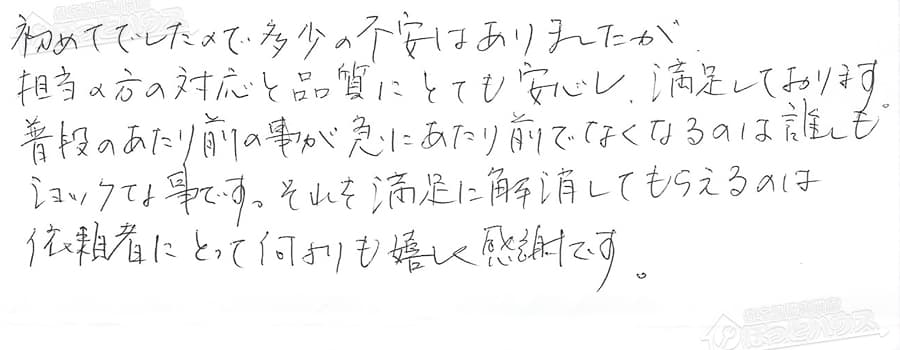 初めてでしたので多少の不安はありましたが、
担当の方の対応と品質にとても安心し、満足しております。
普段のあたり前の事が急にあたり前でなくなるのは誰しも
ショックな事です。それを満足に解消してもらえるのは
依頼者にとって何よりも嬉しく感謝です。